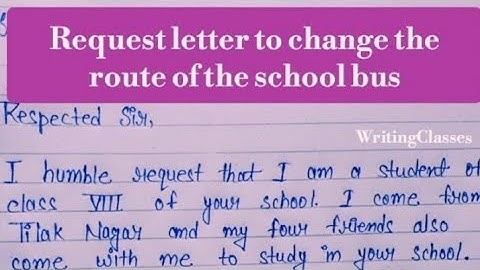 Request letter to change the
route of the school bus
Respected Sir,
WritingClasses
I humble request that I am a student of
class VIII of your school. I come from
Tilak Nagar and my four friends also
come with me to study in your school.